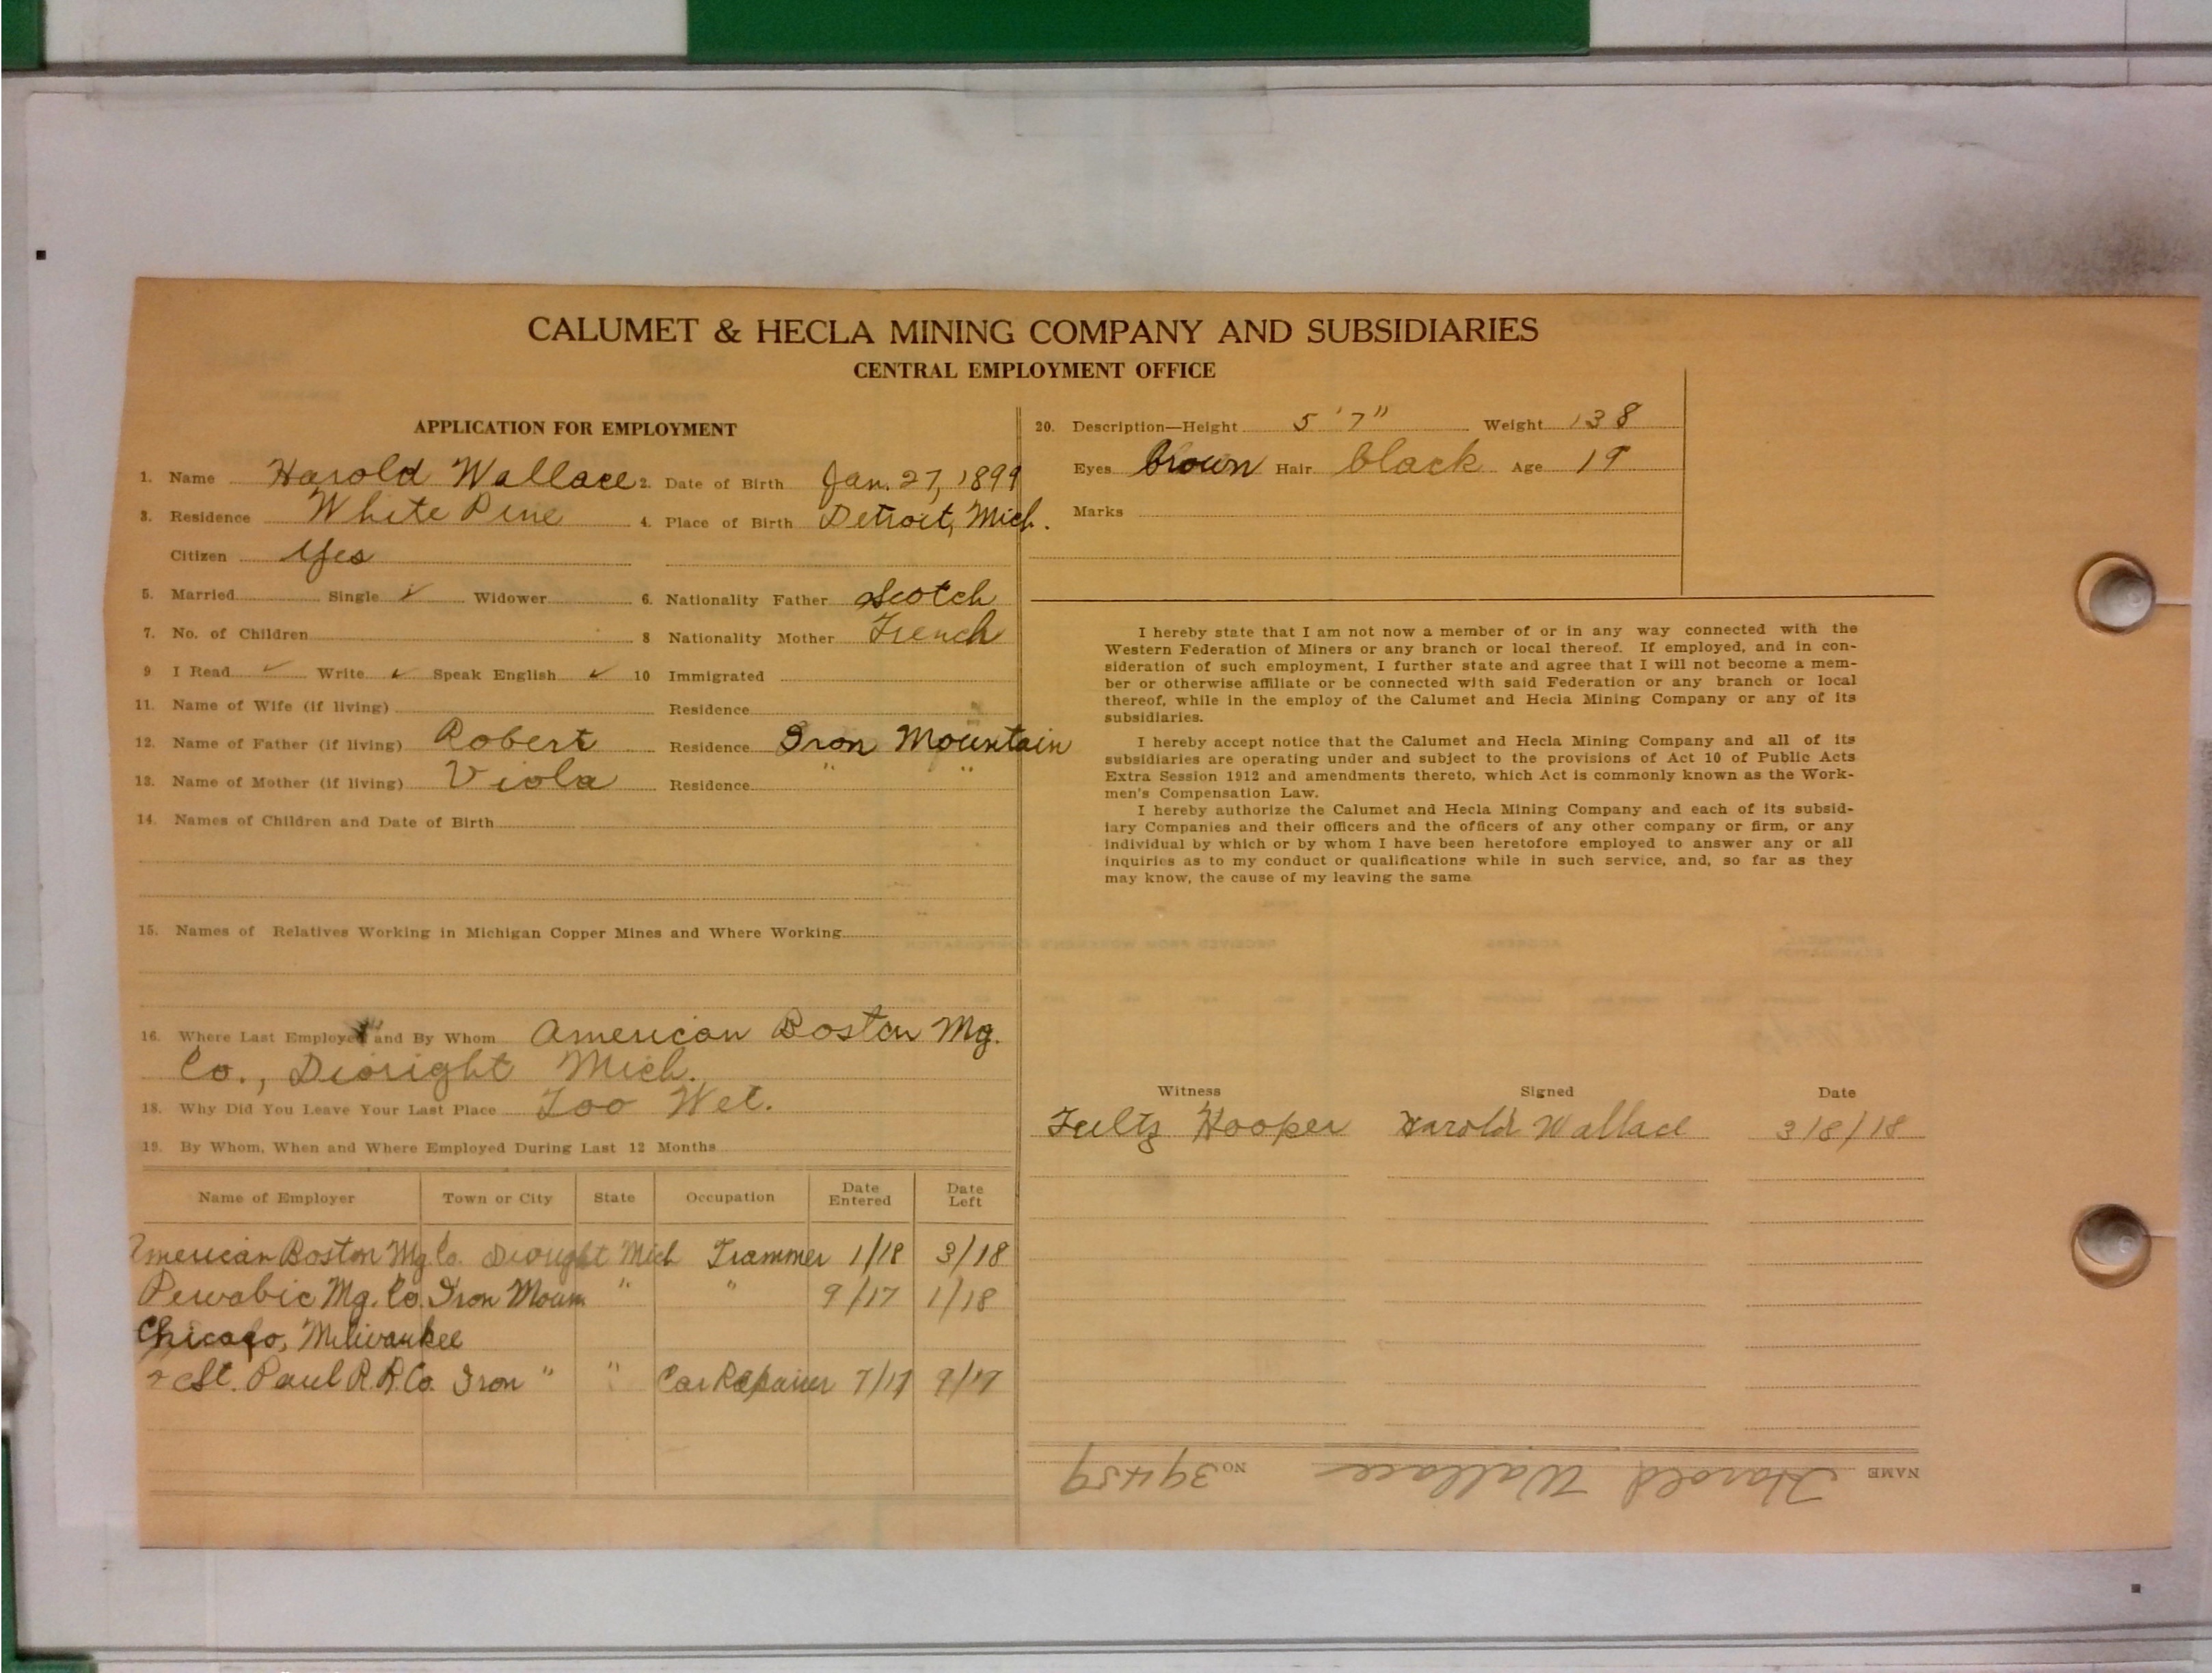 CALUMET & HECLA MINING COMPANY AND SUBSIDIARIES
CENTRAL EMPLOYMENT OFFICE
APPLICATION FOR EMPLOYMENT
1. Name Harold Wallace 2. Date of Birth Jan. 27, 1899
3. Residence White Pine 4. Place of Birth Detroit, Mich.
Citizen Yes
5. Married Single ✓ Widower 6. Nationality Father Scotch
7. No. of Children 8 Nationality Mother French
9 I Read ✓ Write ✓ Speak English ✓ 10 Immigrated
11. Name of Wife (if living) Residence
12. Name of Father (if living) Robert Residence Iron Mountain
13. Name of Mother (if living) Viola Residence " "
14. Names of Children and Date of Birth
15. Names of Relatives Working in Michigan Copper Mines and Where Working
16. Where Last Employed and By Whom American Boston Mg.
Co., Dwight Mich.
18. Why Did You Leave Your Last Place Too Wet.
19. By Whom, When and Where Employed During Last 12 Months
Name of Employer Town or City State Occupation Date Entered Date Left
American Boston Mg. Co. Dwight Mich Trammer 1/18 3/18
Pewabic Mg. Co. Iron Moun " " 9/17 1/18
Chicago, Milwaukee
& St. Paul R.R. Co. Iron " " Car Repairer 7/17 9/17
20. Description—Height 5'7" Weight 138
Eyes brown Hair black Age 19
Marks
I hereby state that I am not now a member of or in any way connected with the
Western Federation of Miners or any branch or local thereof. If employed, and in con-
sideration of such employment, I further state and agree that I will not become a mem-
ber or otherwise affiliate or be connected with said Federation or any branch or local
thereof, while in the employ of the Calumet and Hecla Mining Company or any of its
subsidiaries.
I hereby accept notice that the Calumet and Hecla Mining Company and all of its
subsidiaries are operating under and subject to the provisions of Act 10 of Public Acts
Extra Session 1912 and amendments thereto, which Act is commonly known as the Work-
men's Compensation Law.
I hereby authorize the Calumet and Hecla Mining Company and each of its subsid-
iary Companies and their officers and the officers of any other company or firm, or any
individual by which or by whom I have been heretofore employed to answer any or all
inquiries as to my conduct or qualifications while in such service, and, so far as they
may know, the cause of my leaving the same
Witness Signed Date
Hooper Harold Wallace 3/8/18
NAME Harold Wallace NO. 39459